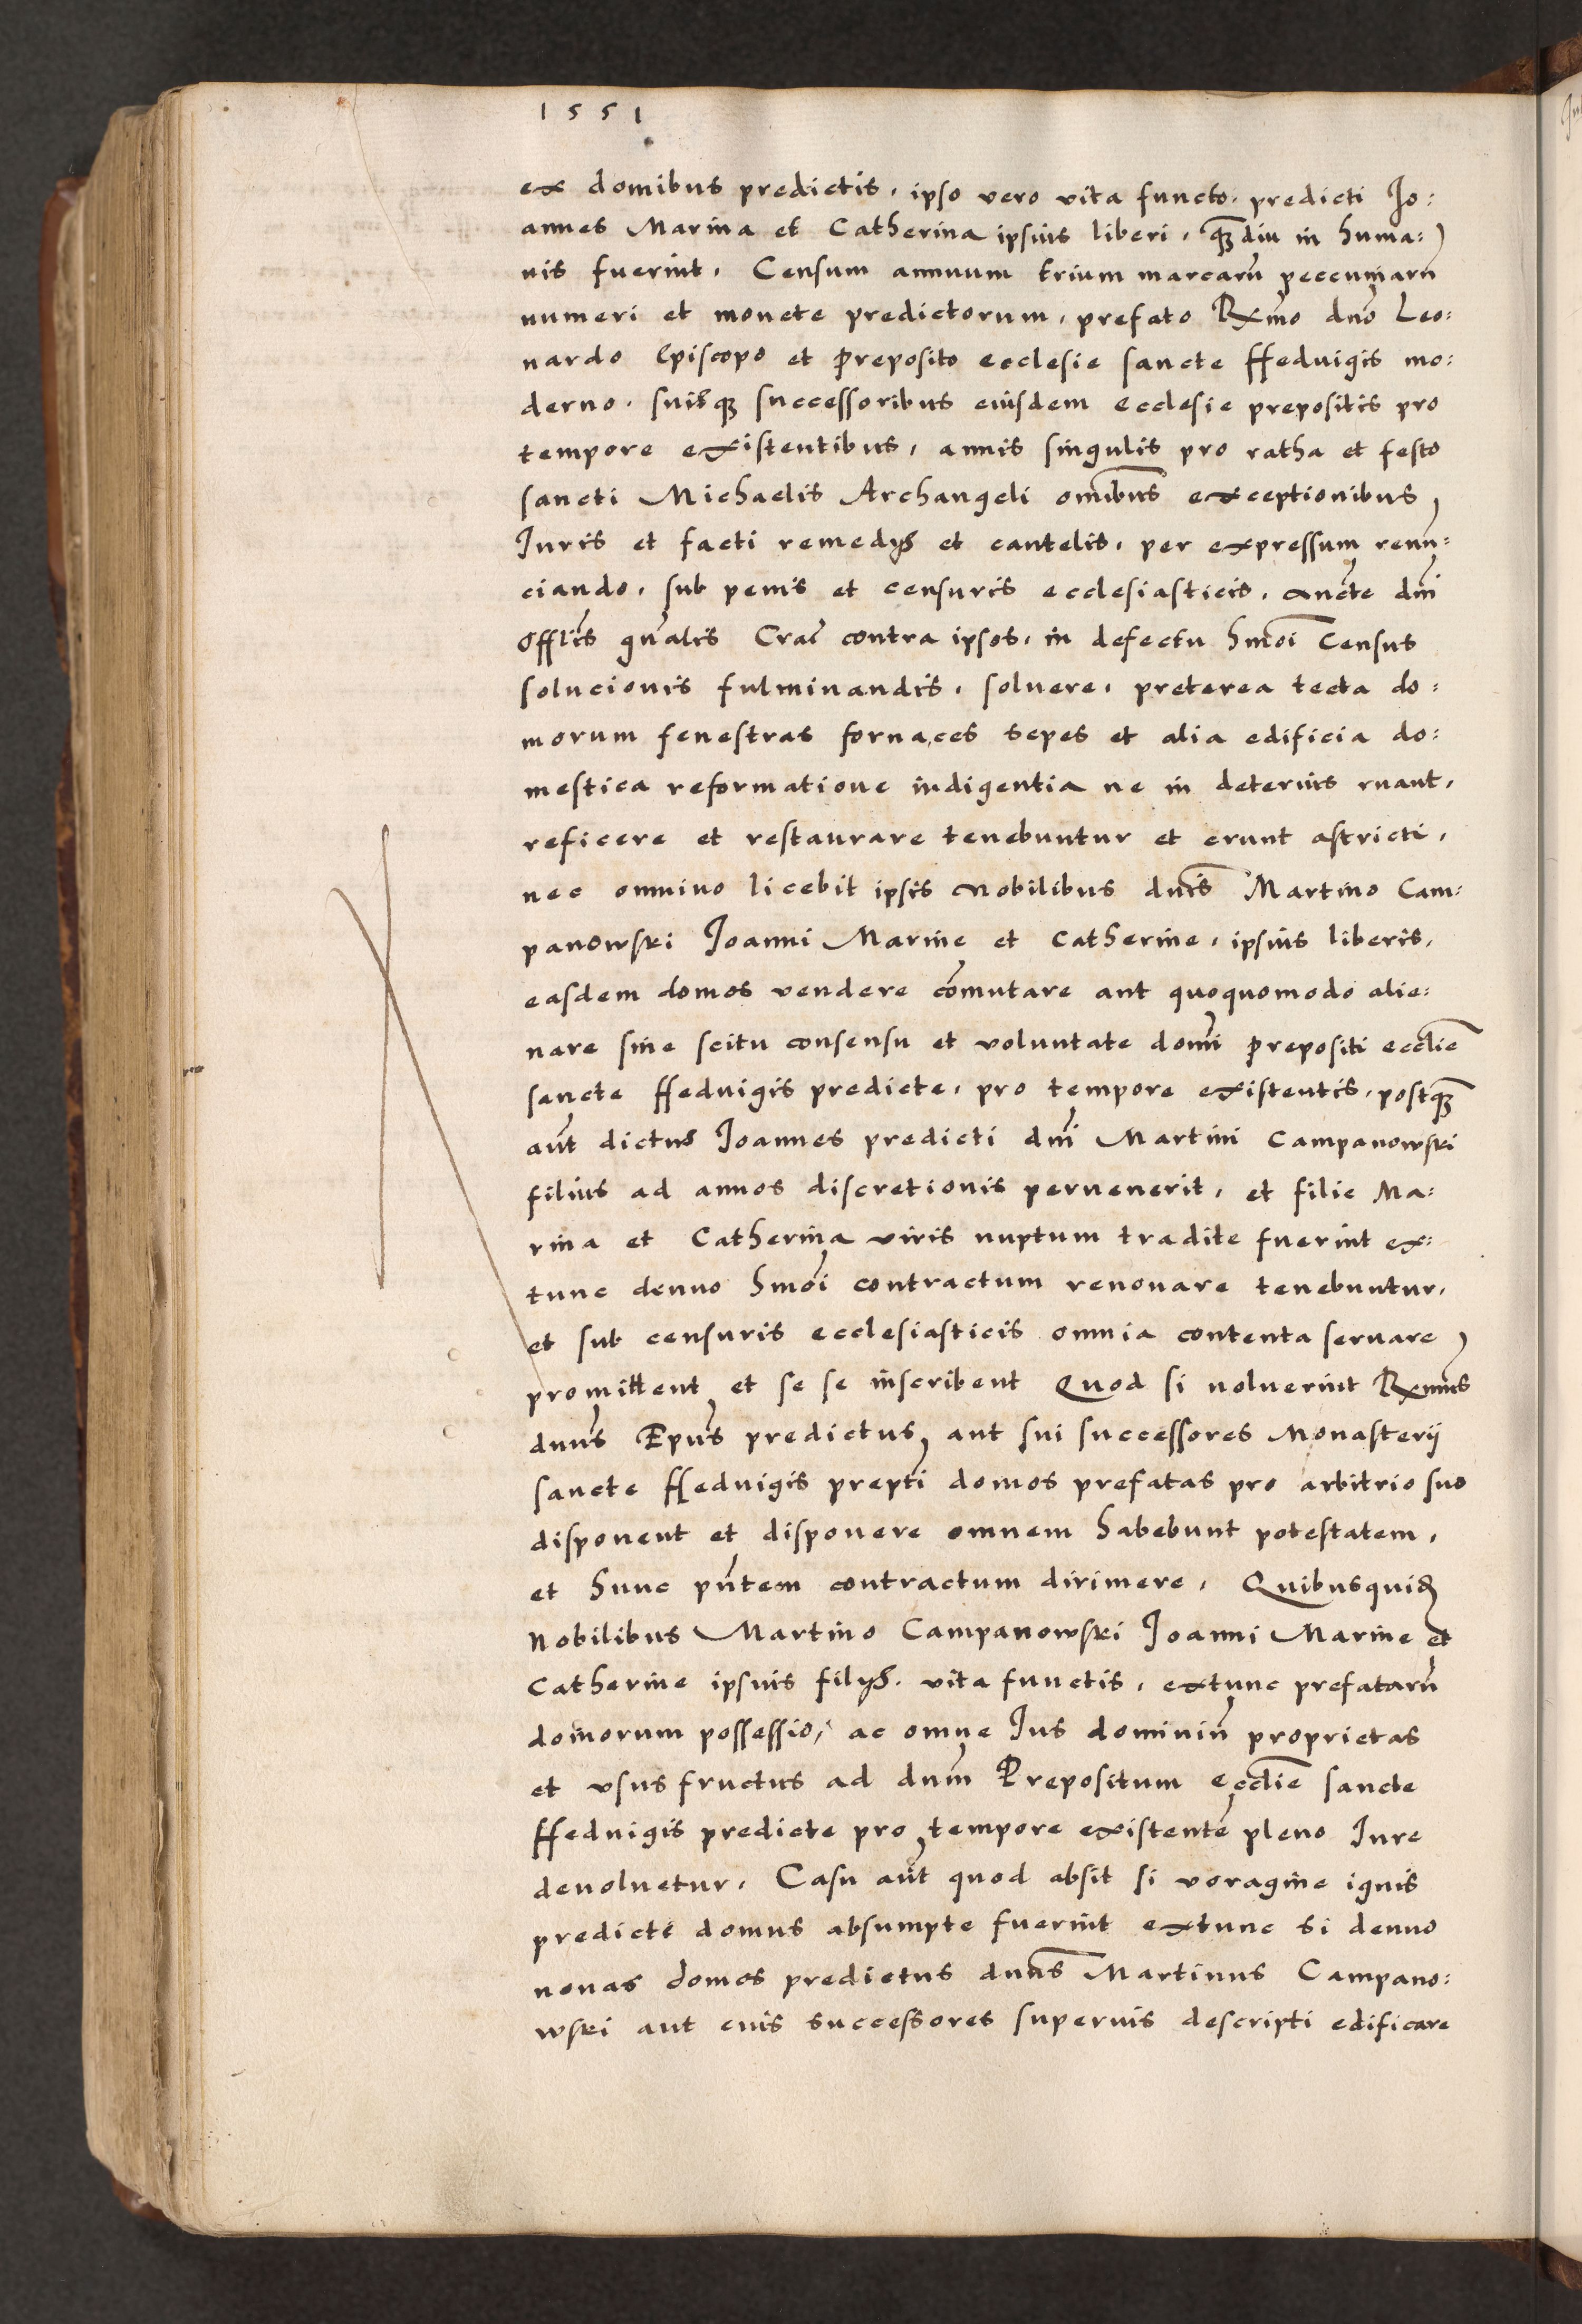 1551
ex domibus predictis, ipso vero vita functo, predicti Jo:
annes Marina et Catherina ipsius liberi, qz̃diu in huma:
nis fuerint, Censum annuum trium marcarũ peccuniarũ
numeri et monete predictorum, prefato Rx̃mo dnõ Leo:
nardo Episcopo et Preposito ecclesie sancte Hedvigis mo:
derno, suisqz successoribus eiusdem ecclesie prepositis pro
tempore existentibus, annis singulis pro ratha et festo
sancti Michaelis Archangeli om̃ibus exceptionibus
Iuris et facti remedys et cautelis, per expressum renũ:
ciando, sub penis et censuris ecclesiasticis, aucte dñi
Offlis gñalis Crac̃ contra ipsos, in defectu hmõi Census
solucionis fulminandis, soluere, preterea tecta do:
morum fenestras fornaces sepes et alia edificia do:
mestica reformatione indigentia ne in deterius ruant,
reficere et restaurare tenebuntur et erunt astricti,
nec omnino licebit ipsis Nobilibus dnis̃ Martino Cam:
panowski Joanni Marine et Catherine, ipsius liberis,
easdem domos vendere com̃utare aut quoquomodo alie:
nare sine scitu consensu et voluntate domĩ prepositi eccliẽ
sancte Hedvigis predicte, pro tempore existentis, postqz̃
aũt dictus Joannes predicti dñi Martini Campanowski
filius ad annos discretionis pervenerit, et filie Ma:
rina et Catherina viris nuptum tradite fuerint ex:
tunc denuo hmõi contractum renouare tenebuntur,
et sub censuris ecclesiasticis omnia contenta seruare
promittent et se se inscribent Quod si noluerint Rxm̃us
dnus̃ Epus̃ predictus aut sui successores Monasterij
sancte Hedvigis prepti domos prefatas pro arbitrio suo
disponent et disponere omnem habebunt potestatem,
et hunc pñtem contractum dirimere, Quibusquidẽ
Nobilibus Martino Campanowski Joanni Marine et
Catherine ipsius filys, vita functis, extunc prefatarũ
domorum possessio, ac omne Ius dominiũ proprietas
et vsus fructus ad dnum̃ Prepositum eccliẽ sancte
Hedvigis predicte pro tempore existentẽ pleno Iure
deuoluetur, Casu aũt quod absit si voragine ignis
predicte domus absumpte fuerint extunc si denuo
nouas domos predictus dnus̃ Martinus Campano:
wski aut eius successores superius descripti edificare